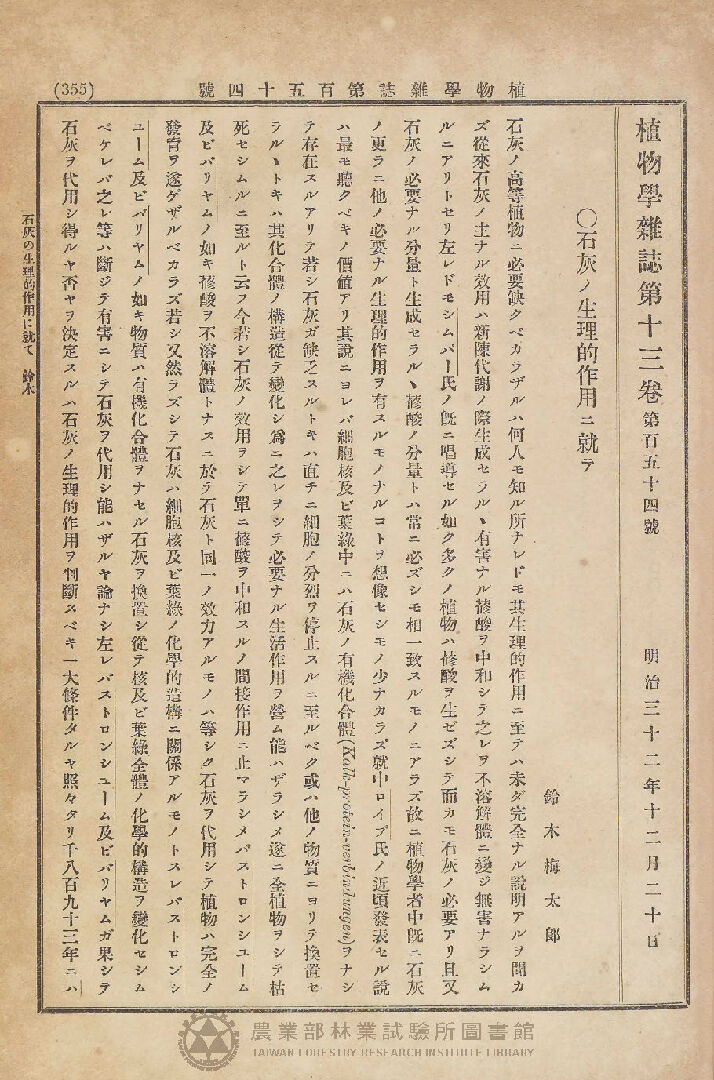 (355)
植物學雜誌第百五十四號
植物學雜誌第十三卷 第百五十四號 明治三十二年十二月二十日
〇石灰ノ生理的作用ニ就テ
鈴木梅太郎
石灰ノ高等植物ニ必要缺クベカラザルハ何人モ知ル所ナレドモ其生理的作用ニ至テハ未ダ完全ナル説明アルヲ聞カ
ズ從來石灰ノ主ナル效用ハ新陳代謝ノ際生成セラルヽ有害ナル蓚酸ヲ中和シテ之レヲ不溶解體ニ變ジ無害ナラシム
ルニアリトセリ左レドモシムパー氏ノ既ニ唱導セル如ク多クノ植物ハ蓚酸ヲ生ゼズシテ而カモ石灰ノ必要アリ且又
石灰ノ必要ナル分量ト生成セラルヽ蓚酸ノ分量トハ常ニ必ズシモ相一致スルモノニアラズ故ニ植物學者中既ニ石灰
ノ更ラニ他ノ必要ナル生理的作用ヲ有スルモノナルコトヲ想像セシモノ少ナカラズ就中ロイブ氏ノ近頃發表セル說
ハ最モ聽クベキノ價値アリ其說ニヨレバ細胞核及ビ葉綠中ニハ石灰ノ有機化合體(Kalk-proteinverbindungen)ヲナシ
テ存在スルアリテ若シ石灰ガ缺乏スルトキハ直チニ細胞ノ分烈ヲ停止スルニ至ルベク或ハ他ノ物質ニヨリテ換置セ
ラルヽトキハ其化合體ノ構造從テ變化シ爲ニ之レヲシテ必要ナル生活作用ヲ營ム能ハザラシメ遂ニ全植物ヲシテ枯
死セシムルニ至ルト云フ今若シ石灰ノ效用ヲシテ單ニ蓚酸ヲ中和スルノ間接作用ニ止マラシメバストロンシユーム
及ビバリヤムノ如キ蓚酸ヲ不溶解體トナスニ於テ石灰ト同一ノ效力アルモノハ等シク石灰ヲ代用シテ植物ハ完全ノ
發育ヲ遂ゲザルベカラズ若シ又然ラズシテ石灰ハ細胞核及ビ葉綠ノ化學的造構ニ關係アルモノトスレバストロンシ
ユーム及ビバリヤムノ如キ物質ハ有機化合體ヲナセル石灰ヲ換置シ從テ核及ビ葉綠全體ノ化學的構造ヲ變化セシム
ベケレバ之レ等ハ斷ジテ有害ニシテ石灰ヲ代用シ能ハザルヤ論ナシ左レバストロンシユーム及ビバリヤムガ果シテ
石灰ヲ代用シ得ルヤ否ヤヲ決定スルハ石灰ノ生理的作用ヲ判斷スベキ一大條件タルヤ照々タリ千八百九十三年ニハ
石灰の生理的作用に就て 鈴木
農業部林業試驗所圖書館
TAIWAN FORESTRY RESEARCH INSTITUTE LIBRARY